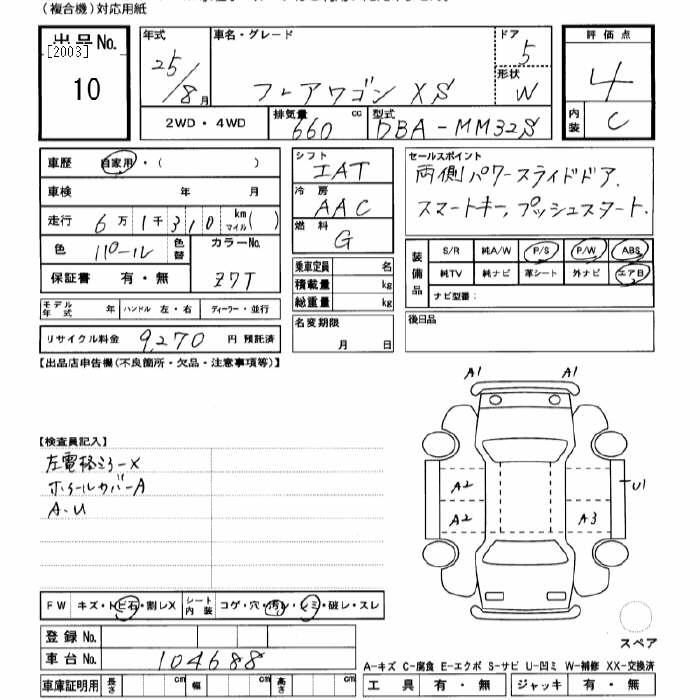 (複合機)対応用紙
出品No. [2003] 10
年式 25/8月
車名・グレード フレアワゴン XS
ドア 5
形状 W
評価点 4
内装 C
2WD・4WD
排気量 660 cc
型式 DBA-MM32S
車歴 自家用・( )
車検 年 月
走行 6万1千310 km マイル( )
色 パール
色替
カラーNo. Z7T
保証書 有・無
シフト IAT
冷房 AAC
燃料 G
乗車定員 名
積載量 kg
総重量 kg
セールスポイント
両側パワースライドドア.
スマートキー,プッシュスタート.
装備品
S/R 純A/W P/S P/W ABS
純TV 純ナビ 革シート 外ナビ エアB
ナビ型番:
モデル年式 年 ハンドル 左・右 ディーラー・並行
名変期限 月 日
後日品
リサイクル料金 9,270 円 預託済
【出品店申告欄(不良箇所・欠品・注意事項等)】
A1 A1
【検査員記入】
左電格ミラーX
ホイールカバーA
A・U
A2 U1
A2 A3
FW キズ・トビ石・割レX
シート内装 コゲ・穴・汚レ・シミ・破レ・スレ
スペア
登録No.
車台No. 104688
A-キズ C-腐食 E-エクボ S-サビ U-凹ミ W-補修 XX-交換済
車庫証明用 長さ cm 幅 cm 高さ cm
工具 有・無 ジャッキ 有・無